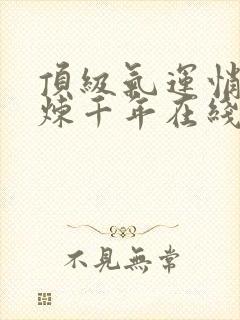 頂級氣運悄
煉千年在綫
不見無常